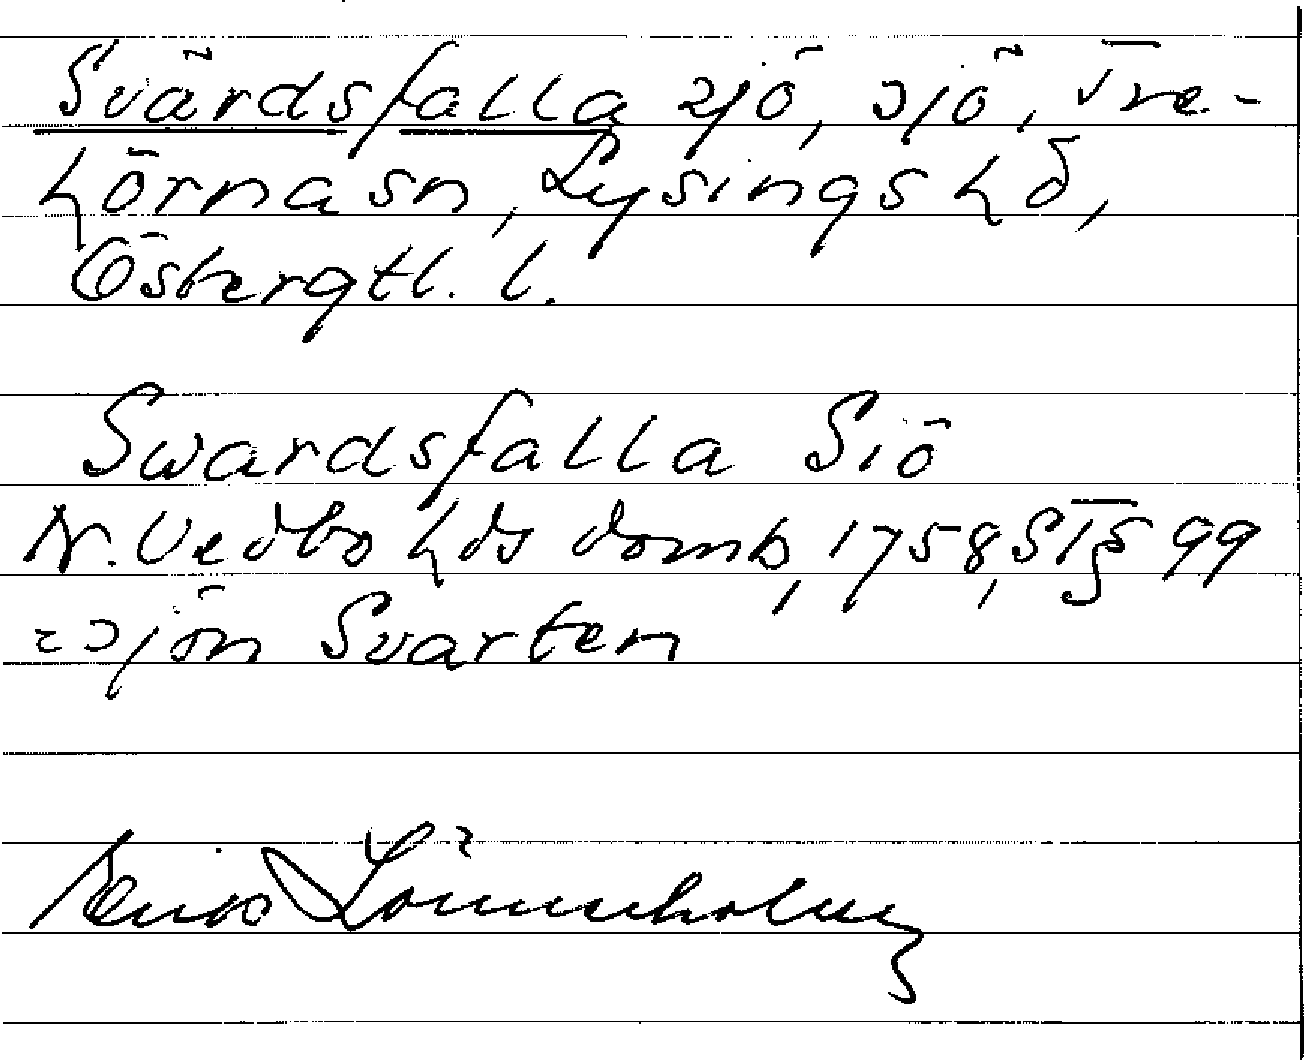 Svärdsfalla sjö, sjö, Tre-
hörna sn, Lysings hd,
Östergtl. l.
Swardsfalla Siö
N. Vedbo hds domb, 1758, ST § 99
= sjön Svarten
Lönnerholm